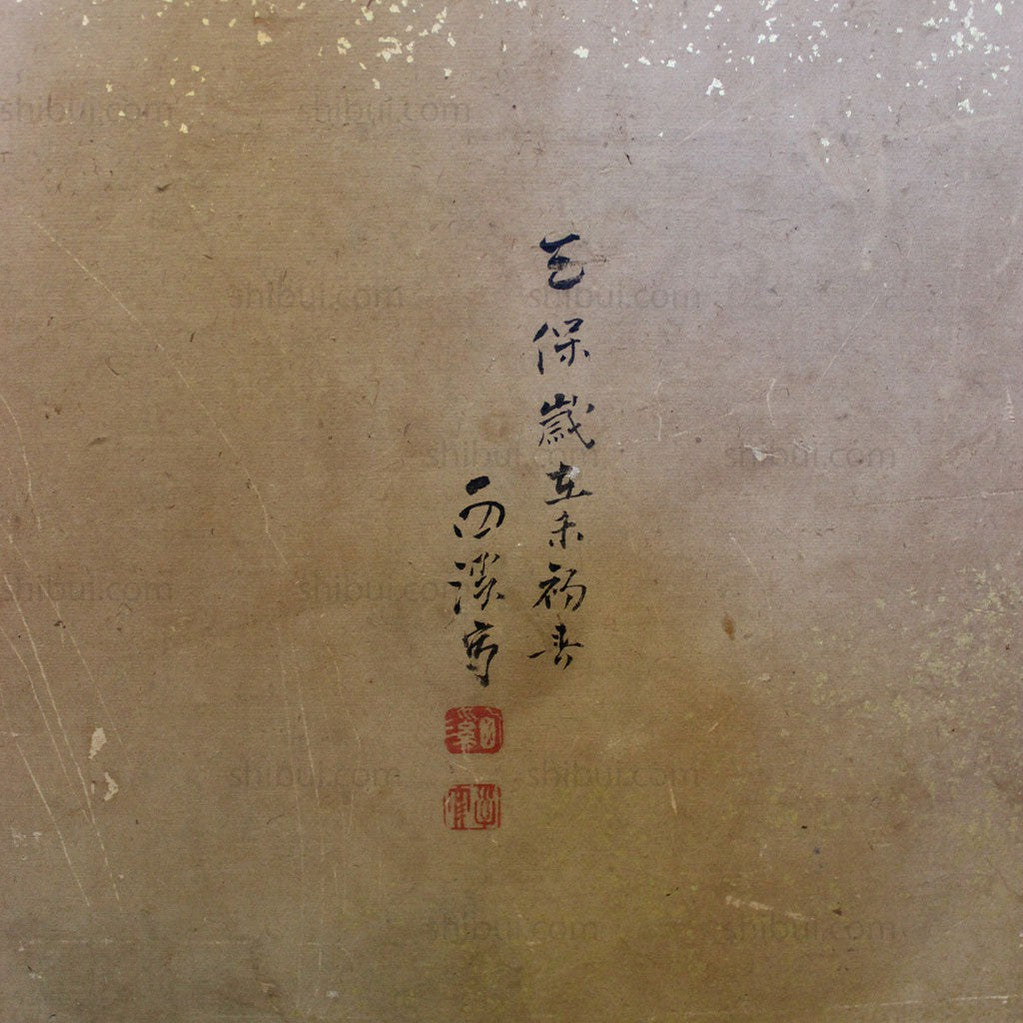 天保歳在未初春
西溪寫
shibui.com
shibui.com
shibui.com
shibui.com
shibui.com
shibui.com
shibui.com
shibui.com
shibui.com
shibui.com
shibui.com
shibui.com